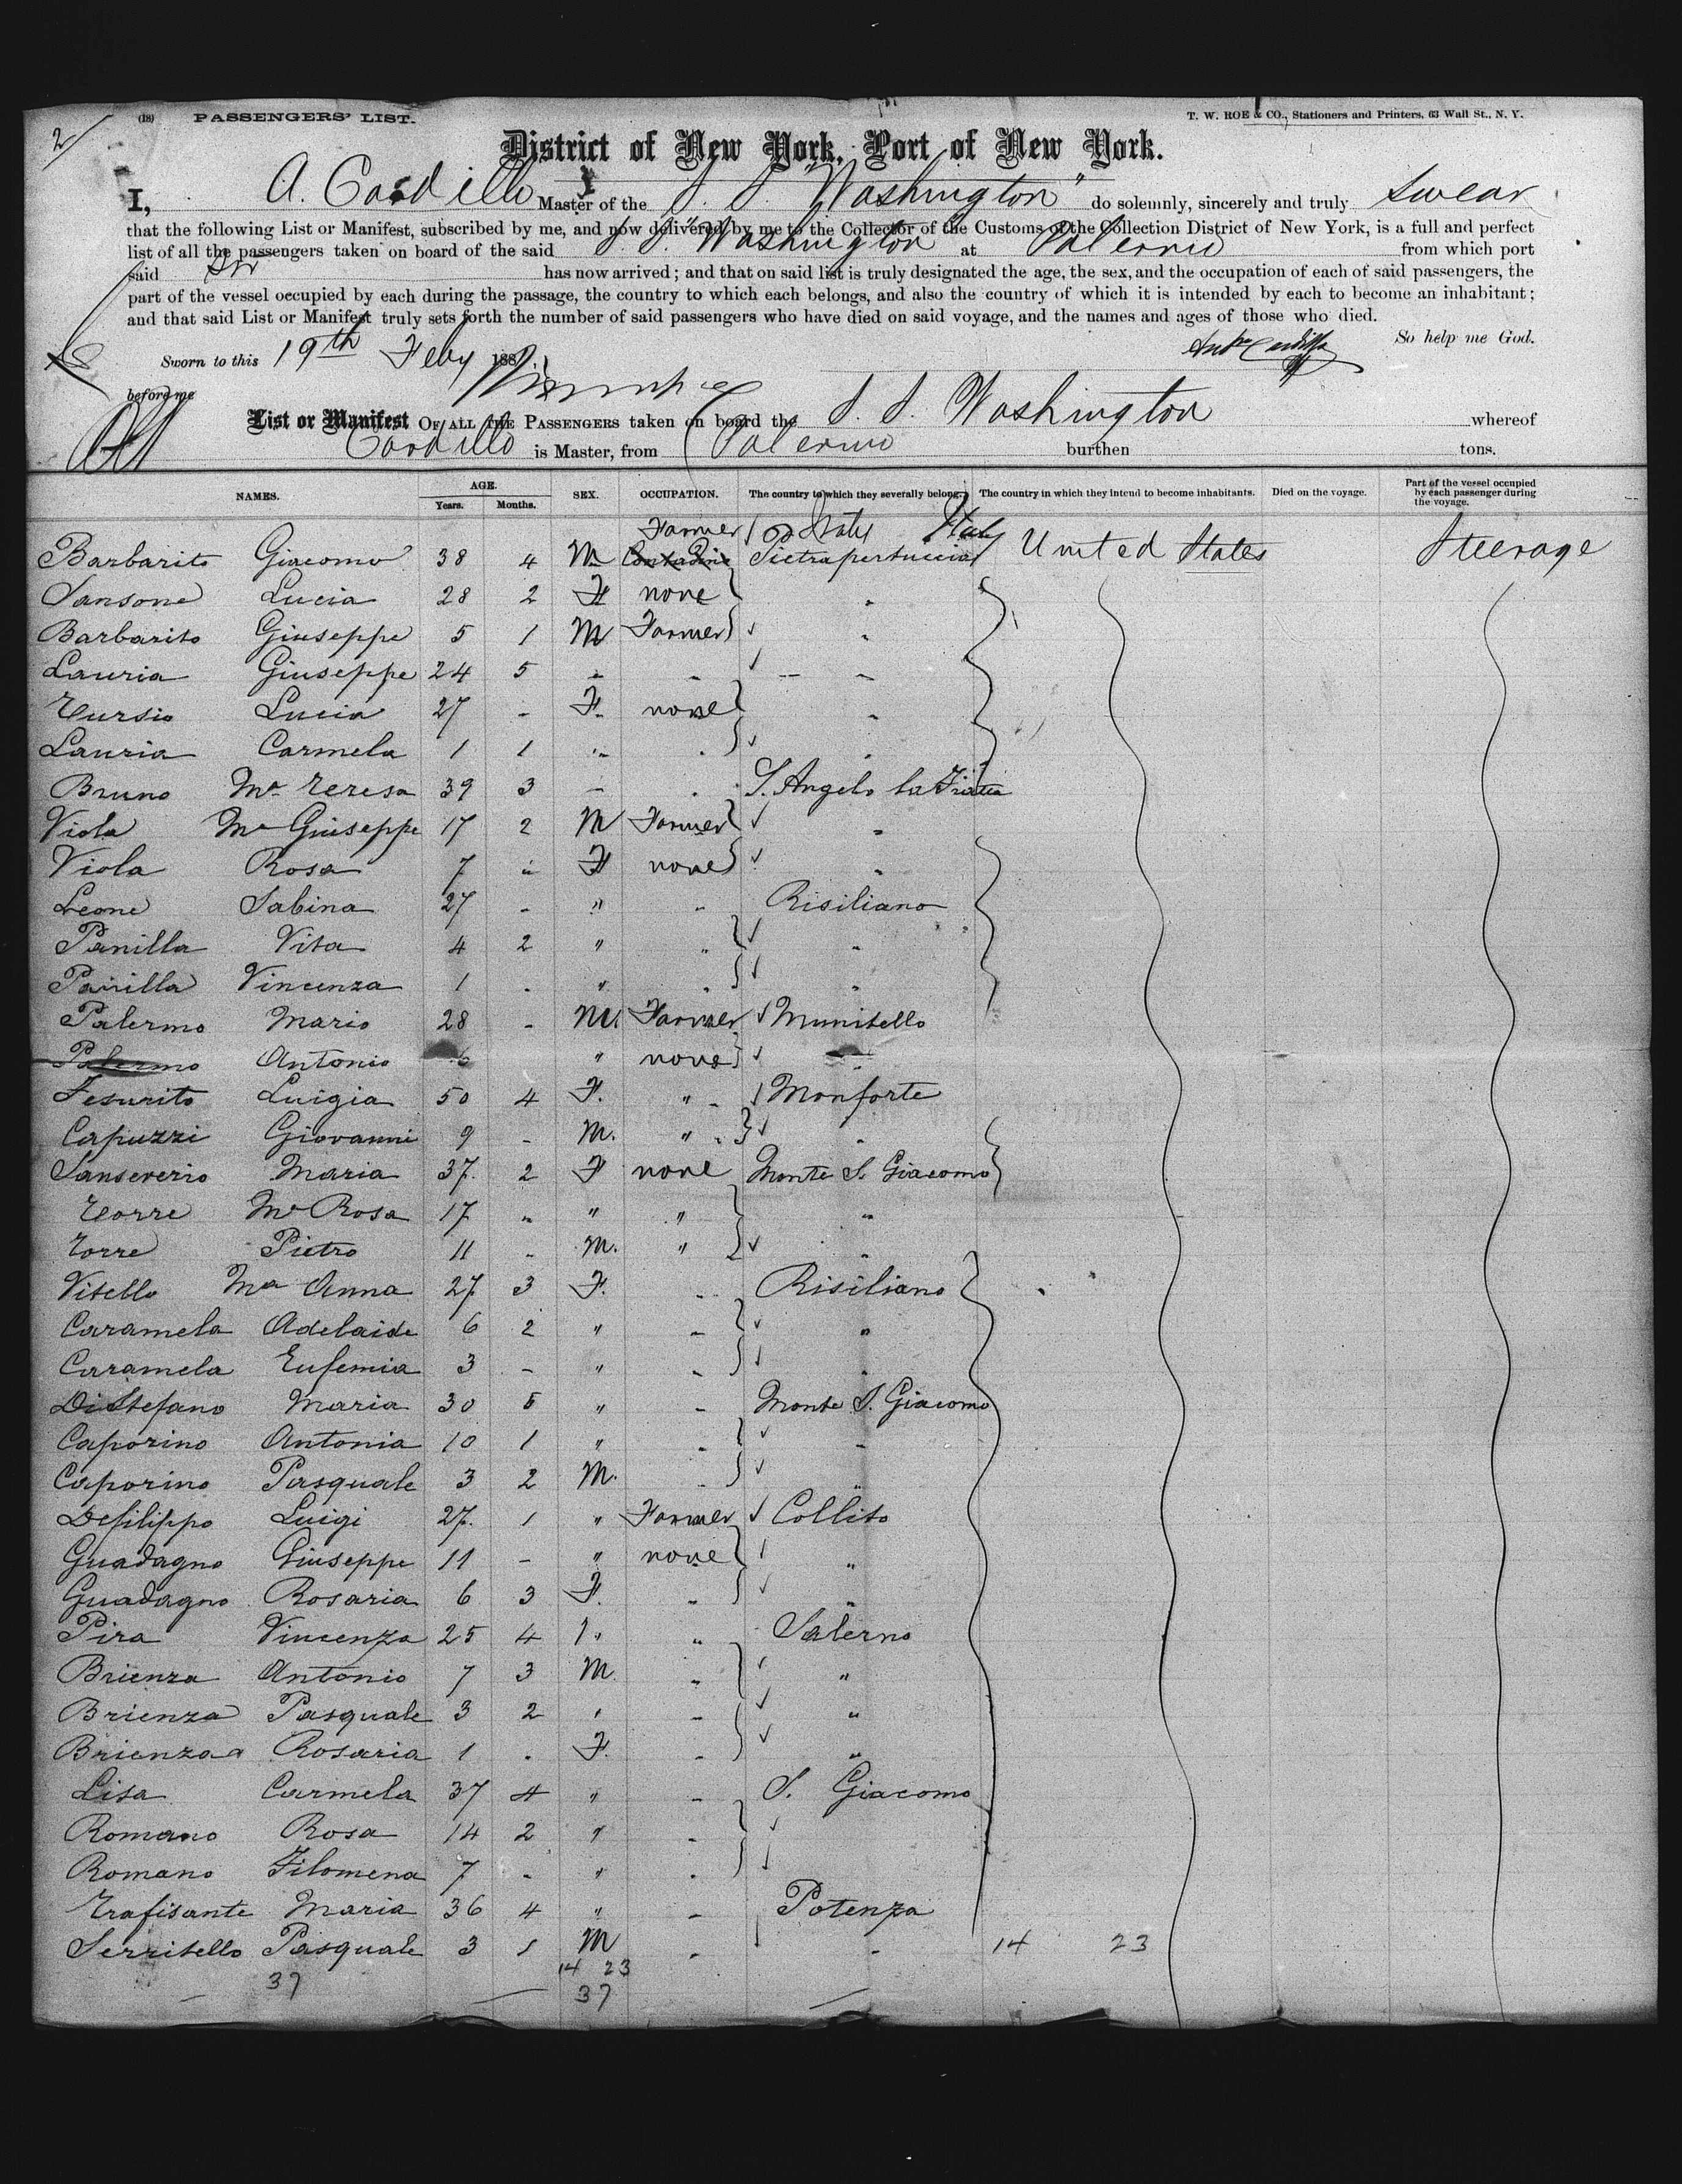 2/
(18) PASSENGERS' LIST.
T. W. ROE & CO., Stationers and Printers, 63 Wall St., N. Y.
District of New York, Port of New York.
I, A. Cardillo Master of the S. S. "Washington" do solemnly, sincerely and truly swear
that the following List or Manifest, subscribed by me, and now delivered by me to the Collector of the Customs of the Collection District of New York, is a full and perfect
list of all the passengers taken on board of the said S. S. Washington at Palermo from which port
said has now arrived; and that on said list is truly designated the age, the sex, and the occupation of each of said passengers, the
part of the vessel occupied by each during the passage, the country to which each belongs, and also the country of which it is intended by each to become an inhabitant;
and that said List or Manifest truly sets forth the number of said passengers who have died on said voyage, and the names and ages of those who died.
So help me God.
Sworn to this 19th Feby 188
before me
List or Manifest OF ALL THE PASSENGERS taken on board the S. S. Washington whereof
Cardillo is Master, from Palermo burthen tons.
NAMES. AGE. Years. Months. SEX. OCCUPATION. The country to which they severally belong. The country in which they intend to become inhabitants. Died on the voyage. Part of the vessel occupied by each passenger during the voyage.
Farmer Italy
Barbarito Giacomo 38 4 M Contadino Pietrapertuccia United States Steerage
Sansone Lucia 28 2 F none "
Barbarito Giuseppe 5 1 M Farmer "
Lauria Giuseppe 24 5 " " " "
Tursio Lucia 27 - F. none "
Lauria Carmela 1 1 " " "
Bruno Ma Teresa 39 3 " " S. Angelo La Fratta
Viola Ma Giuseppe 17 2 M Farmer "
Viola Rosa 7 " F none "
Leone Sabina 27 - " " Risiliano
Panilla Vita 4 2 " " "
Panilla Vincenza 1 - " " "
Palermo Mario 28 - M. Farmer Munitello
Palermo Antonio 6 " none "
Fesurito Luigia 50 4 F. " Monforte
Capuzzi Giovanni 9 - M. " "
Sanseverio Maria 37 2 F none Monte S. Giacomo
Torre Ma Rosa 17 " " " "
Torre Pietro 11 - M. " "
Vitello Ma Anna 27 3 F. " Risiliano
Caramela Adelaide 6 2 " " "
Caramela Eufemia 3 - " " "
Di Stefano Maria 30 5 " " Monte S. Giacomo
Caporino Antonia 10 1 " " "
Caporino Pasquale 3 2 M. " "
Defilippo Luigi 27. 1 " Farmer Collito
Guadagno Giuseppe 11 - " none "
Guadagno Rosaria 6 3 F. " "
Pira Vincenza 25 4 " " Salerno
Brienza Antonio 7 3 M. " "
Brienza Pasquale 3 2 " " "
Brienza Rosaria 1 - F. " "
Lisa Carmela 37 4 " " S. Giacomo
Romano Rosa 14 2 " "
Romano Filomena 7 - " "
Trafisante Maria 36 4 " " Potenza
Serritello Pasquale 3 1 M " " 14 23
14 23
37 37